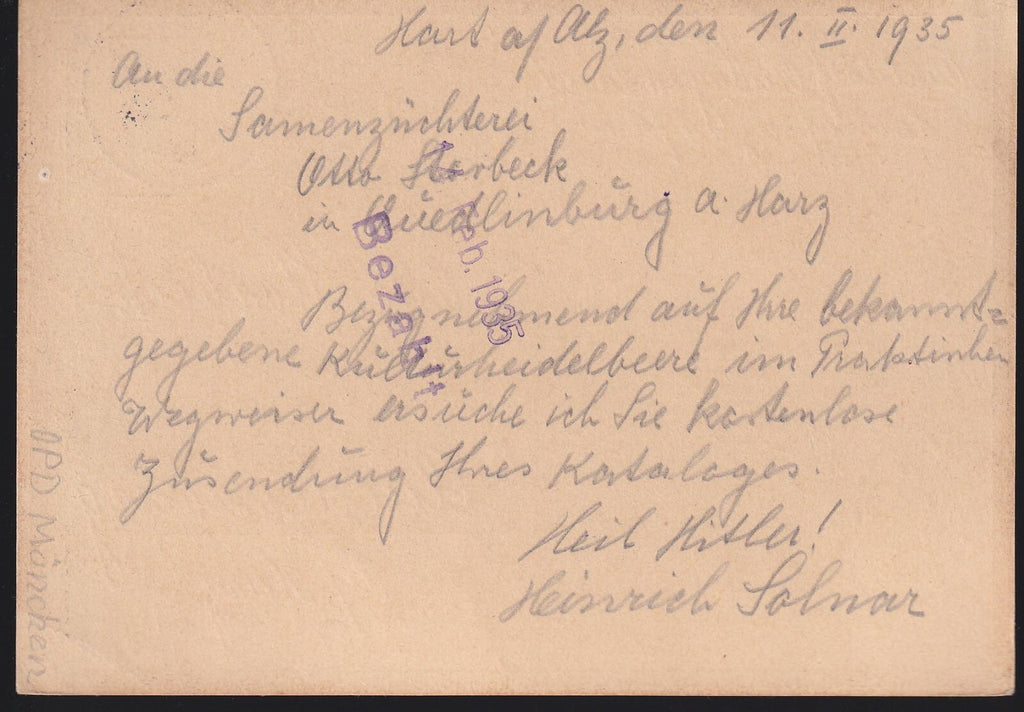 Hart a/ Alz, den 11. II. 1935
An die
Samenzüchterei
Otto Sterbeck
in Quedlinburg a. Harz
Feb. 1935
Bezahlt
Bezugnehmend auf Ihre bekannt=
gegebene Kulturheidelbeere im Praktischen
Wegweiser ersuche ich Sie kostenlose
Zusendung Ihres Kataloges.
Heil Hitler!
Heinrich Solnar
OPD München